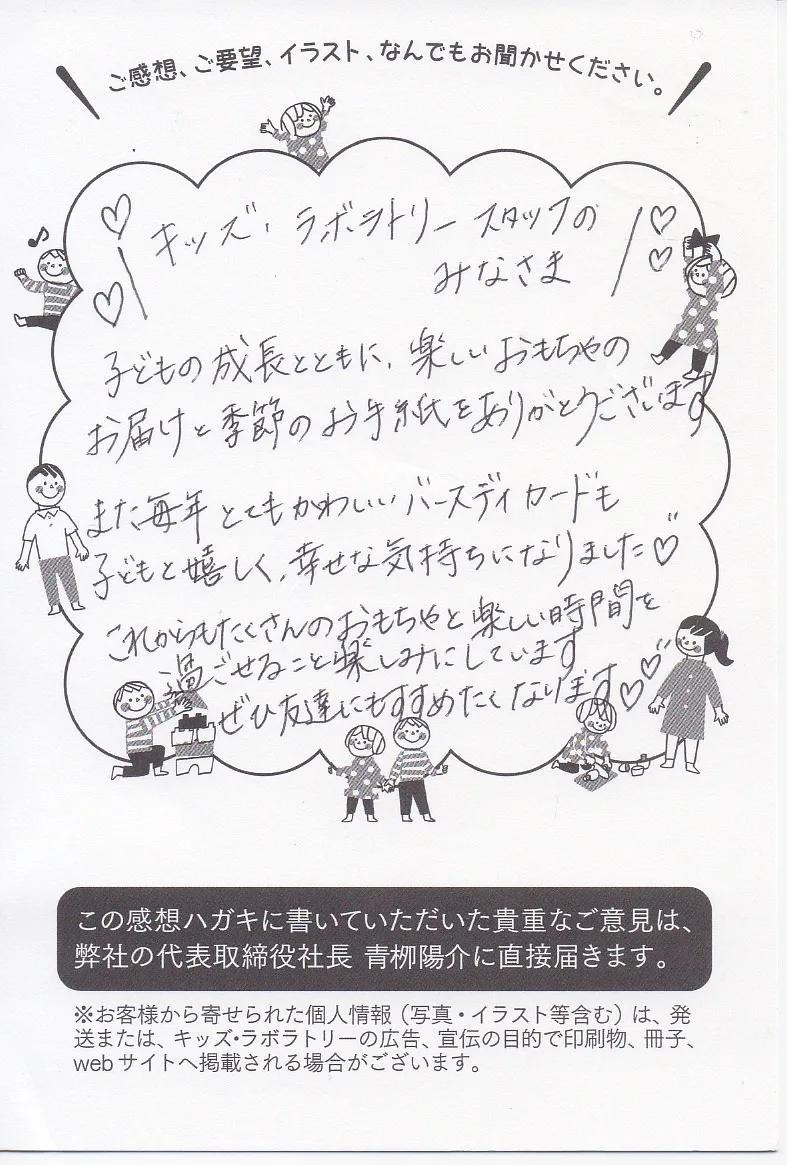 ご感想、ご要望、イラスト、なんでもお聞かせください。
キッズ・ラボラトリー スタッフの
みなさま
子どもの成長とともに、楽しいおもちゃの
お届けと季節のお手紙をありがとうございます
また毎年とてもかわいいバースディカードも
子どもと嬉しく、幸せな気持ちになりました♡
これからもたくさんのおもちゃと楽しい時間を
過ごせること楽しみにしています
ぜひ友達にもすすめたくなります♡♡
この感想ハガキに書いていただいた貴重なご意見は、
弊社の代表取締役社長 青栁陽介に直接届きます。
※お客様から寄せられた個人情報（写真・イラスト等含む）は、発
送または、キッズ・ラボラトリーの広告、宣伝の目的で印刷物、冊子、
webサイトへ掲載される場合がございます。